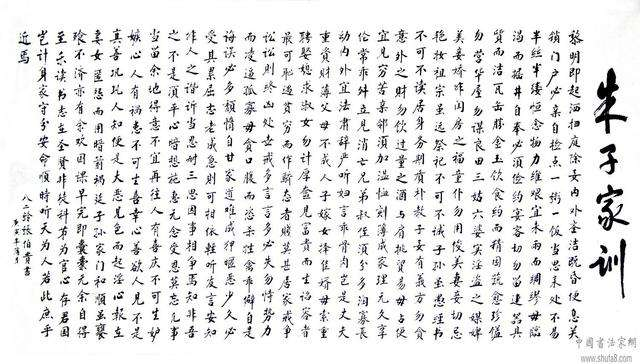 朱子家训
黎明即起洒扫庭除要内外整洁既昏便息关
锁门户必亲自检点一粥一饭当思来处不易
半丝半缕恒念物力维艰宜未雨而绸缪毋临
渴而掘井自奉必须俭约宴客切勿留连器具
质而洁瓦缶胜金玉饮食约而精园蔬愈珍馐
勿营华屋勿谋良田三姑六婆实淫盗之媒婢
美妾娇非闺房之福童仆勿用俊美妻妾切忌
艳妆祖宗虽远祭祀不可不诚子孙虽愚经书
不可不读居身务期质朴教子要有义方勿贪
意外之财勿饮过量之酒与肩挑贸易毋占便
宜见穷苦亲邻须加温恤刻薄成家理无久享
伦常乖舛立见消亡兄弟叔侄须分多润寡长
幼内外宜法肃辞严听妇言乖骨肉岂是丈夫
重资财薄父母不成人子嫁女择佳婿毋索重
聘娶媳求淑女勿计厚奁见富贵而生谄容者
最可耻遇贫穷而作骄态者贱莫甚居家戒争
讼讼则终凶处世戒多言言多必失勿恃势力
而凌逼孤寡毋贪口腹而恣杀牲禽乖僻自是
悔误必多颓惰自甘家道难成狎昵恶少久必
受其累屈志老成急则可相依轻听发言安知
非人之谮诉当忍耐三思因事相争焉知非吾
之不是须平心暗想施惠无念受恩莫忘凡事
当留余地得意不宜再往人有喜庆不可生妒
嫉心人有祸患不可生喜幸心善欲人见不是
真善恶恐人知便是大恶见色而起淫心报在
妻女匿怨而用暗箭祸延子孙家门和顺虽饔
飧不济亦有余欢国课早完即囊橐无余自得
至乐读书志在圣贤非徒科第为官心存君国
岂计身家守分安命顺时听天为人若此庶乎
近焉
八三龄张伯青书
中国书法家网
www.shufa8.com